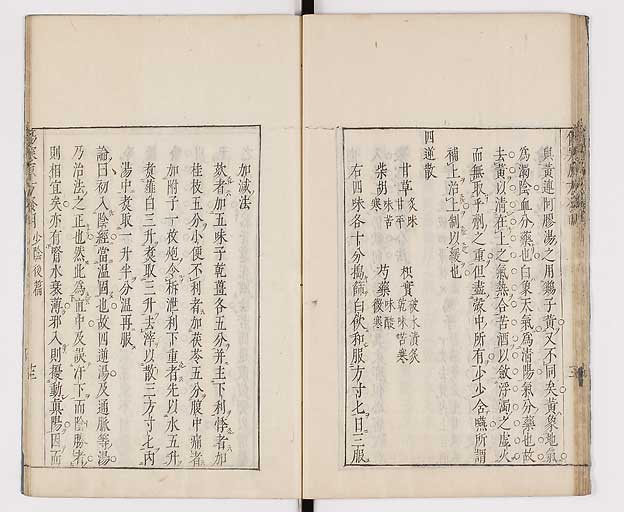 與黃連阿膠湯之用鷄子黃又不同矣黃象地氣
為濁陰血分藥也白象天氣為清陽氣分藥也故
去黃以清在上之氣熱合苦酒以斂浮濁之虛火
而無取乎剤之重但盡𣪊中所有少少含嚥所謂
補上治上制以緩也
四逆散
甘草 甘平 炙味 枳實 乾味苦寒 破水漬炙
柴胡 寒 味苦 芍藥 微寒 味酸
右四味各十分搗篩白飲和服方寸匕日三服
加減法
欬者加五味子乾薑各五分并主下利悸者加
桂枝五分小便不利者加茯苓五分腹中痛者
加附子一枚炮令柝泄利下重者先以水五升
煑薤白三升煑取三升去滓以散三方寸匕內
湯中煑取一升半分溫再服
論曰初入陰經當溫固也故四逆湯及通脈等湯
乃治法之正也然此為血中及誤汗下而陰勝者
則相宜矣亦有腎水衰薄邪入則擾動真陽因而
少陰後篇